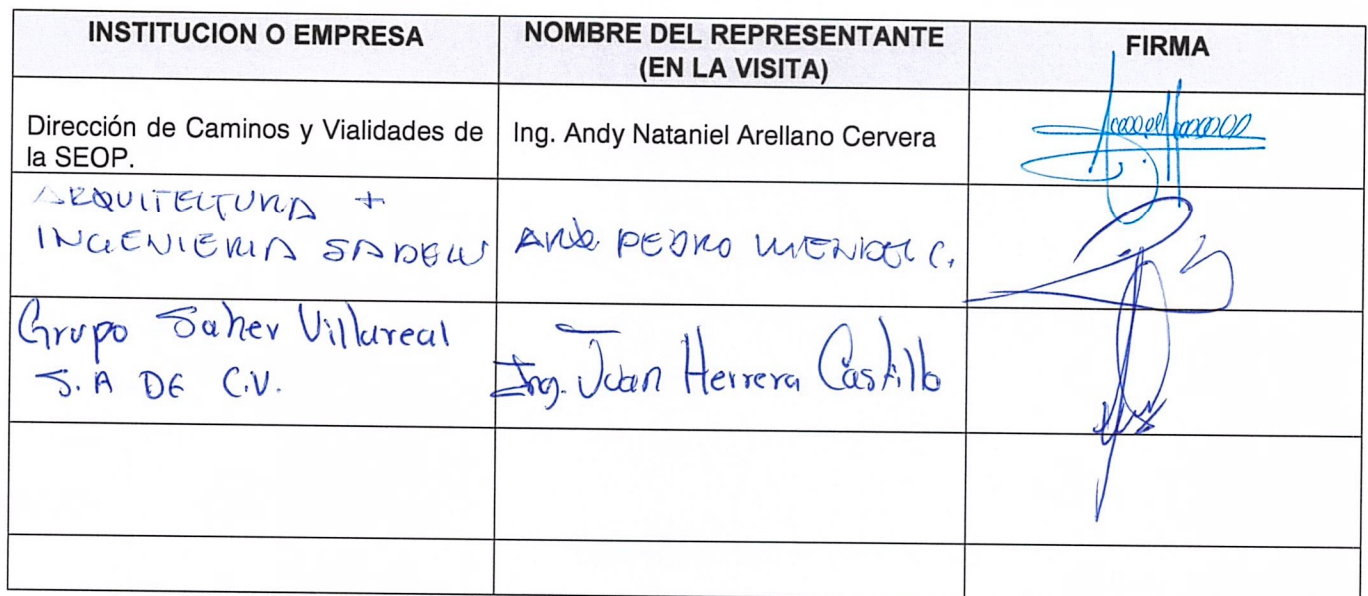 INSTITUCION O EMPRESA
NOMBRE DEL REPRESENTANTE
(EN LA VISITA)
FIRMA
Dirección de Caminos y Vialidades de
la SEOP.
Ing. Andy Nataniel Arellano Cervera
ARQUITECTURA +
INGENIERIA
PEDRO C.
Grupo Saher Villareal
S.A DE C.V.
Ing. Juan Herrera Castillo